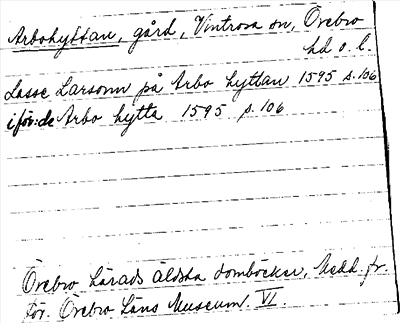 Arbohyttan, gård, Vintrosa sn, Örebro
hd o. l.
Lasse Larsonn på Arbo hyttan 1595 s. 106
i för:de Arbo hytta 1595 s. 106
Örebro härads äldsta domböcker, Medd. fr.
För. Örebro Läns Museum. VI.